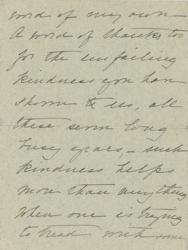 word of my own
A word of thanks too
for the unfailing
kindness you have
shown to us, all
these seven long
busy years, – such
kindness helps
more than anything
when one is trying
to tread